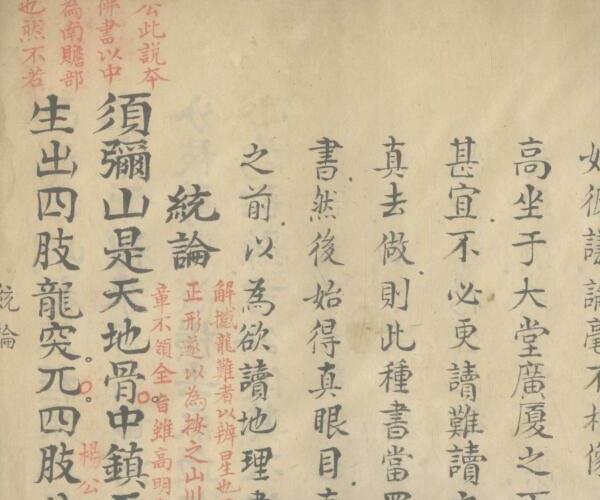 談論毫不相像
高坐于大堂廣厦之
甚宜不必更讀難讀
真去做則此種書當
書然後始得真眼目
之前以為欲讀地理書
統論
解撼龍難者以辨星也
正形遂以為按之山川
章不領全旨雖高明
公此說本
佛書以中
為南贍部
也然不若
須彌山是天地骨中鎮
生出四肢龍突兀四肢
楊公
統論